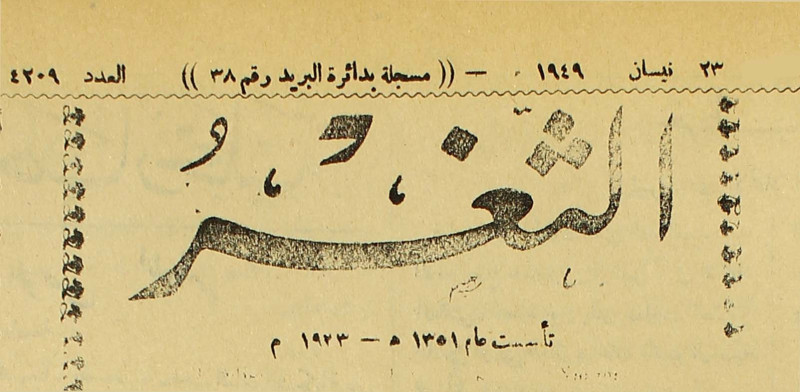 ٢٣ نيسان ١٩٤٩ — (( مسجلة بدائرة البريد رقم ٣٨ )) العدد ٤٢٠٩
الثَّغْرُ
تأسست عام ١٣٥١ ه — ١٩٢٣ م